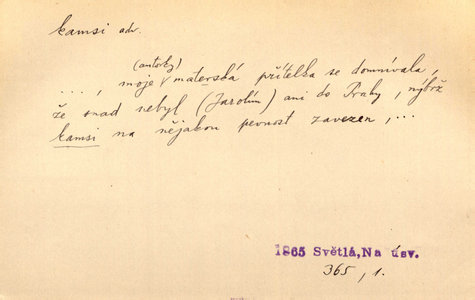 kamsi adv.
(autorky)
..., moje mateřská přítelka se domnívala,
že snad nebyl (Jarolím) ani do Prahy, nýbrž
kamsi na nějakou pevnost zavezen, ...
1865 Světlá, Na úsv.
365, 1.